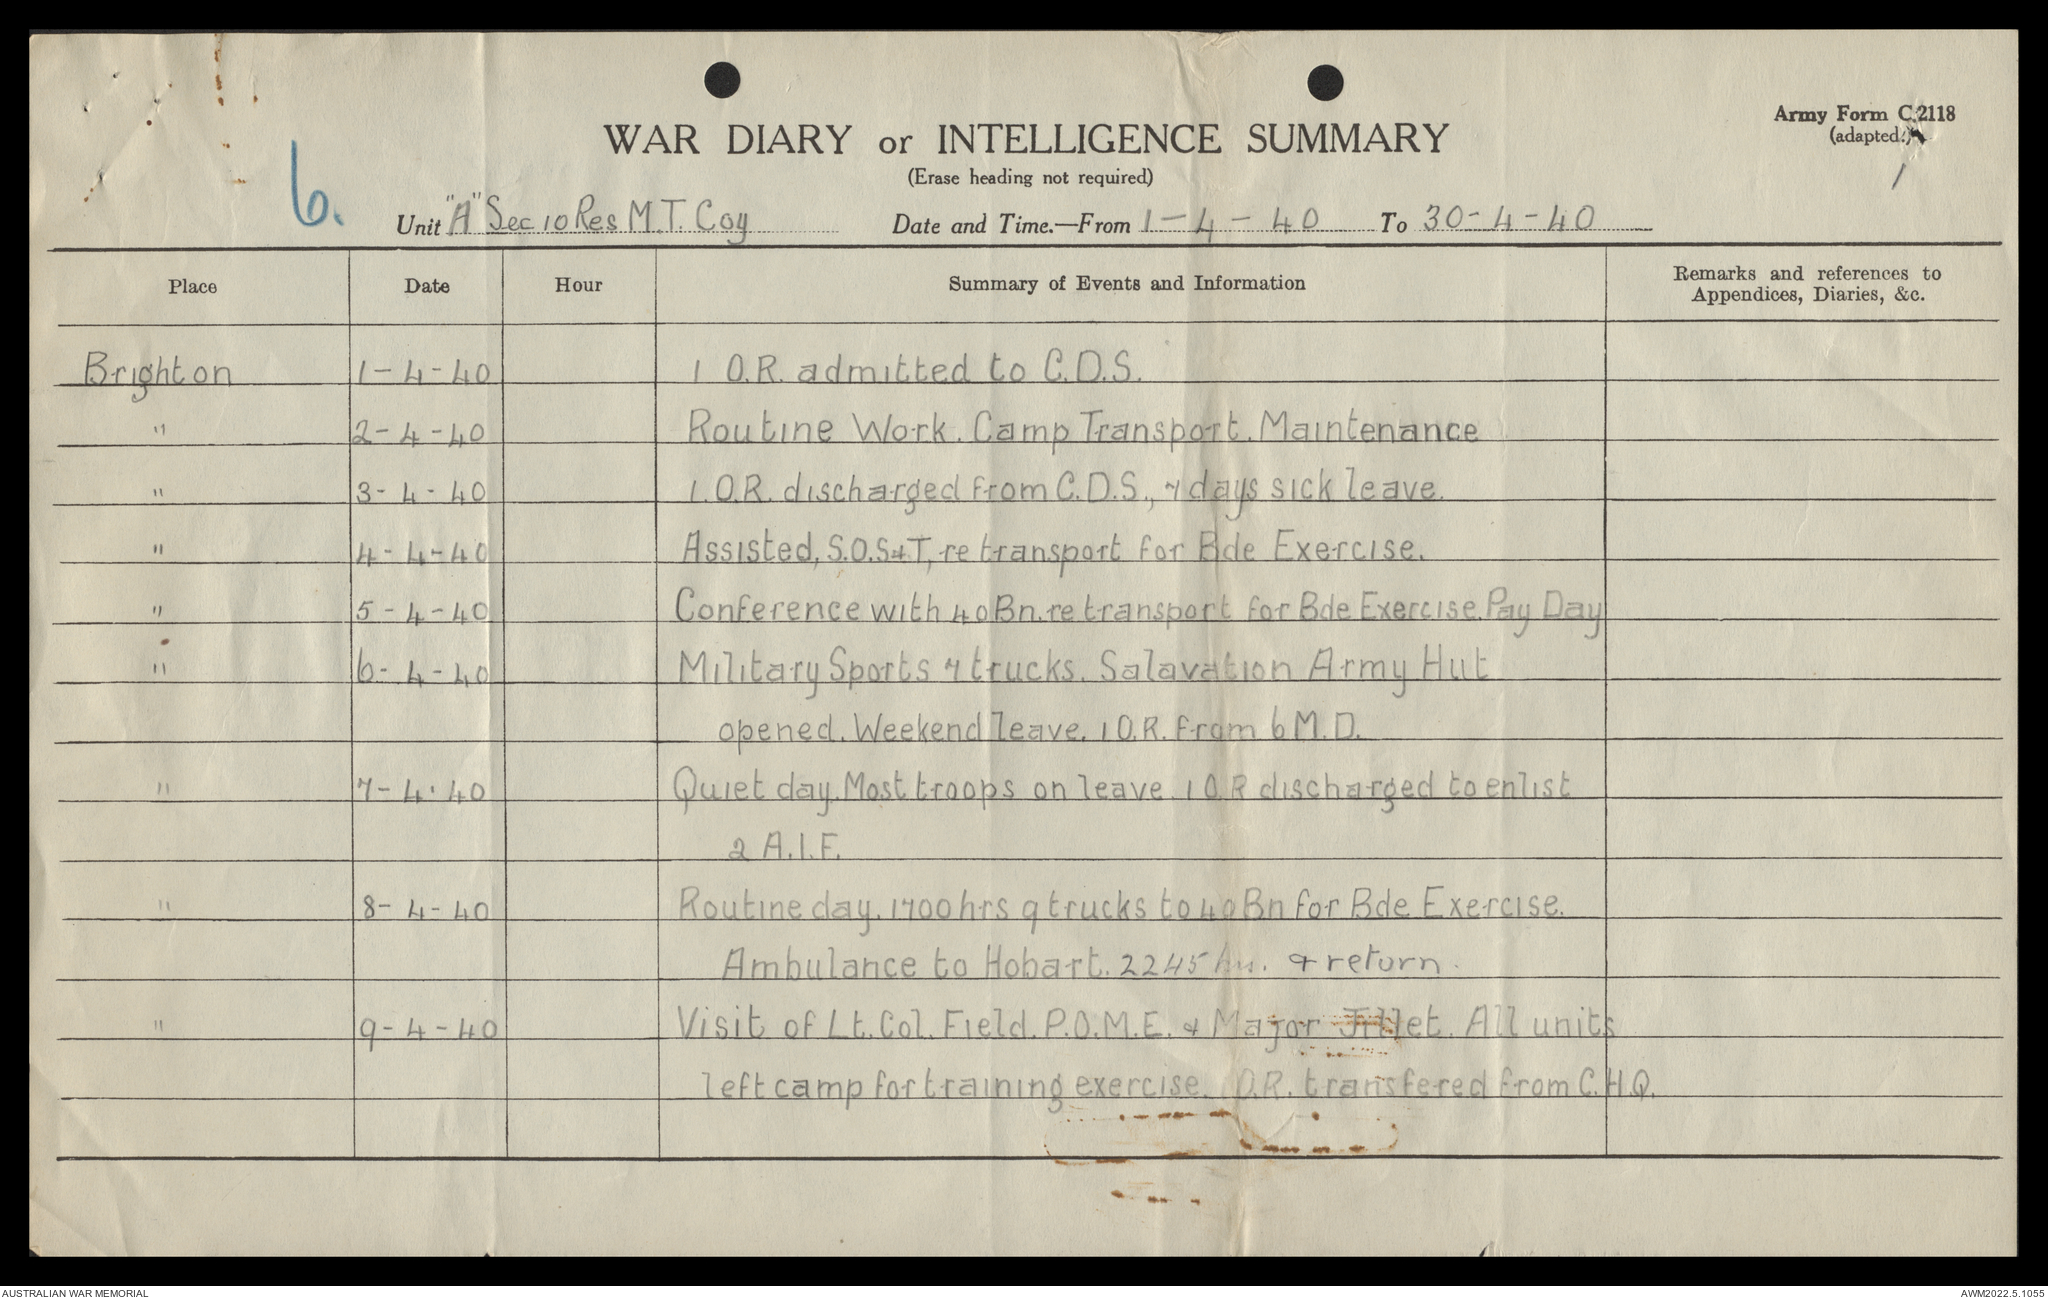 Army Form C.2118
(adapted.)
WAR DIARY or INTELLIGENCE SUMMARY
(Erase heading not required)
6.
Unit "A" Sec 10 Res M.T. Coy Date and Time.—From 1-4-40 To 30-4-40
Place Date Hour Summary of Events and Information Remarks and references to
Appendices, Diaries, &c.
Brighton 1-4-40 1 O.R. admitted to C.D.S.
" 2-4-40 Routine Work. Camp Transport. Maintenance
" 3-4-40 1.O.R. discharged from C.D.S., 7 days sick leave.
" 4-4-40 Assisted, S.O.S&T, re transport for Bde Exercise.
" 5-4-40 Conference with 40Bn. re transport for Bde Exercise. Pay Day
" 6-4-40 Military Sports 7 trucks. Salavation Army Hut
opened. Weekend leave. 1 O.R. from 6 M.D.
" 7-4.40 Quiet day. Most troops on leave. 1 O.R discharged to enlist
2 A.I.F.
" 8-4-40 Routine day. 1700 hrs 9 trucks to 40Bn for Bde Exercise.
Ambulance to Hobart. 2245 hrs. & return.
" 9-4-40 Visit of Lt. Col. Field. P.O.M.E. & Major. All units
left camp for training exercise. 1 O.R. transfered from C.H.Q.
AUSTRALIAN WAR MEMORIAL AWM2022.5.1055